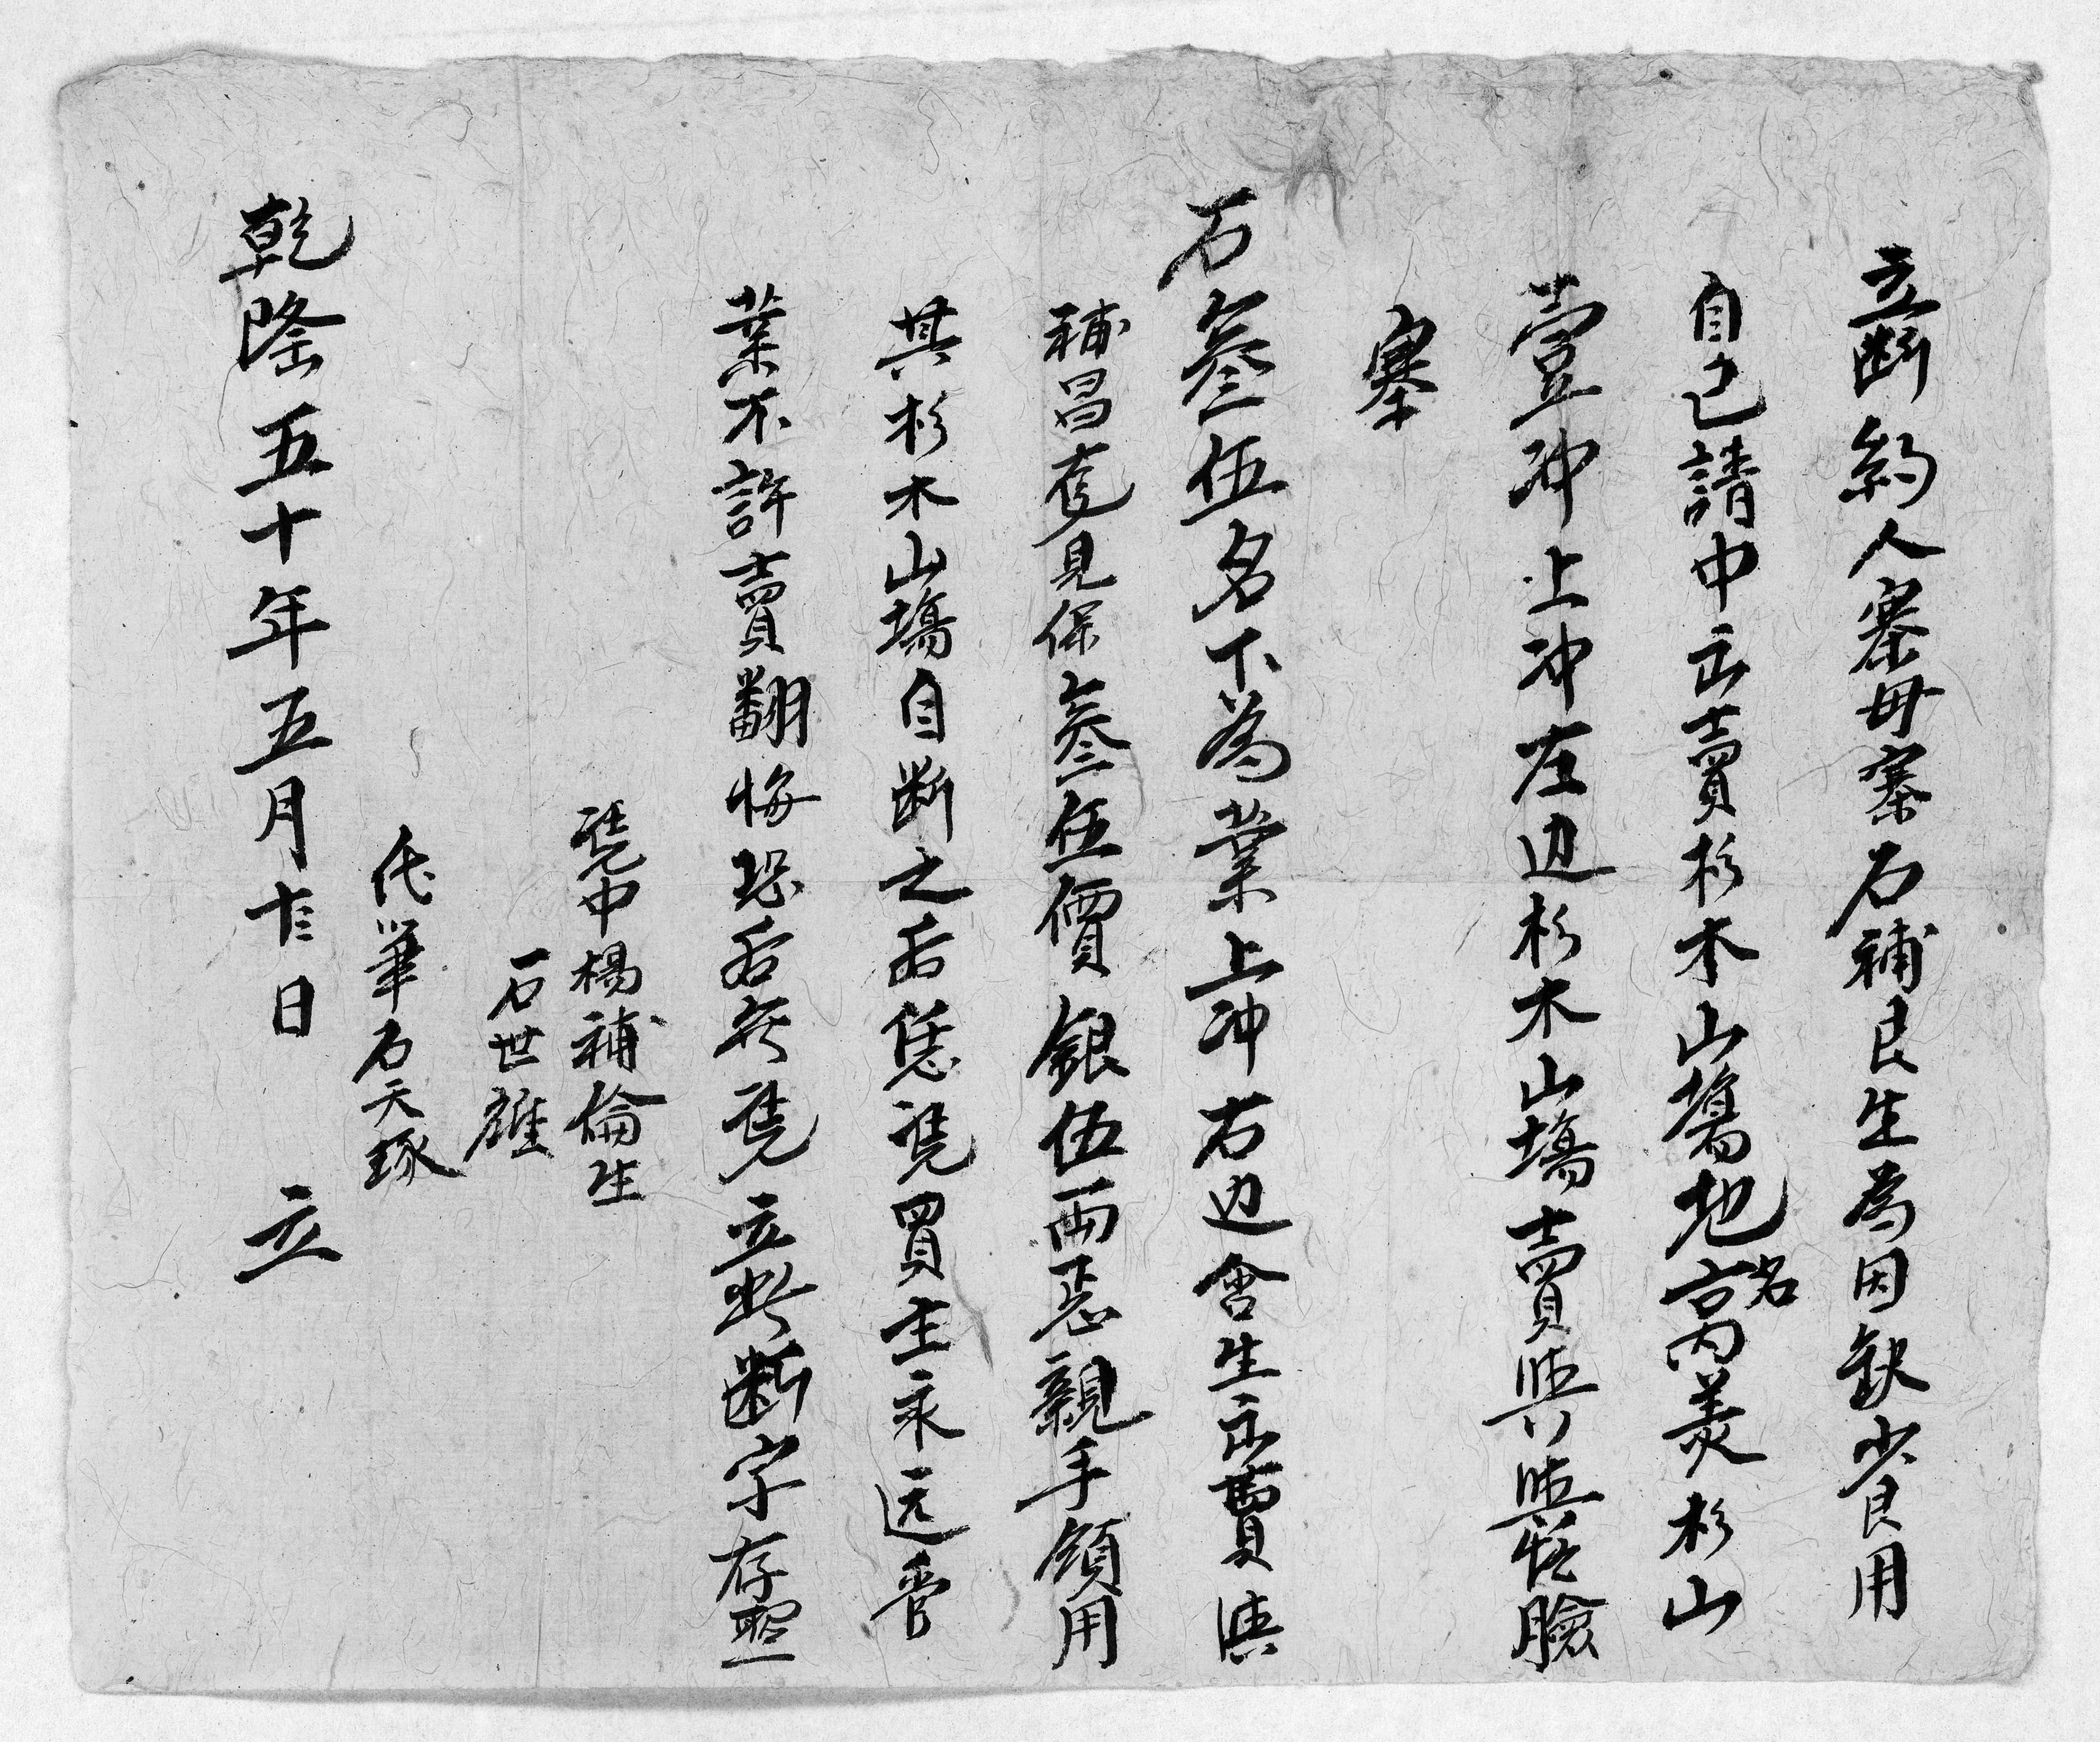 立断約人寨毋寨石補良生為因缺少艮用
自己請中出賣杉木山塲地名高丙美杉山
壹冲上冲左边杉木山塲賣與與徔臉
寨
石叁伍名下為業上冲右边舍生出賣
補昌見保叁伍價銀伍両親手領用
其杉木山塲自断之后恁凴買主永远管
業不許賣翻悔恐后無凴立此断字存照
凴中楊補倫生
石世雄
代筆石天琢
乾隆五十年五月日 立